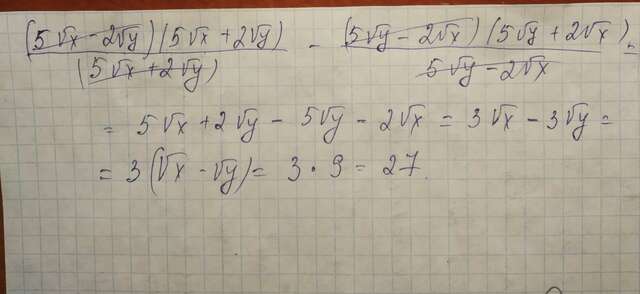 (5√x - 2√y)(5√x + 2√y) / (5√x + 2√y) - (5√y - 2√x)(5√y + 2√x) / 5√y - 2√x =
= 5√x + 2√y - 5√y - 2√x = 3√x - 3√y =
= 3(√x - √y) = 3 · 9 = 27.